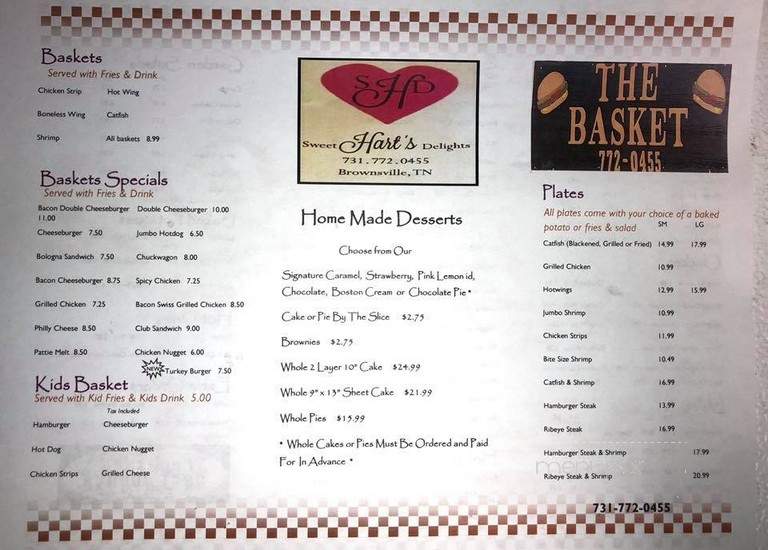 Baskets
Served with Fries & Drink
Chicken Strip Hot Wing
Boneless Wing Catfish
Shrimp All baskets 8.99
Baskets Specials
Served with Fries & Drink
Bacon Double Cheeseburger Double Cheeseburger 10.00
11.00
Cheeseburger 7.50 Jumbo Hotdog 6.50
Bologna Sandwich 7.50 Chuckwagon 8.00
Bacon Cheeseburger 8.75 Spicy Chicken 7.25
Grilled Chicken 7.25 Bacon Swiss Grilled Chicken 8.50
Philly Cheese 8.50 Club Sandwich 9.00
Pattie Melt 8.50 Chicken Nugget 6.00
NEW Turkey Burger 7.50
Kids Basket
Served with Kid Fries & Kids Drink 5.00
Tax Included
Hamburger Cheeseburger
Hot Dog Chicken Nugget
Chicken Strips Grilled Cheese
SHD
Sweet Hart's Delights
731.772.0455
Brownsville, TN
Home Made Desserts
Choose from Our
Signature Caramel, Strawberry, Pink Lemon id,
Chocolate, Boston Cream or Chocolate Pie *
Cake or Pie By The Slice $2.75
Brownies $2.75
Whole 2 Layer 10" Cake $24.99
Whole 9" x 13" Sheet Cake $21.99
Whole Pies $15.99
* Whole Cakes or Pies Must Be Ordered and Paid
For In Advance *
THE
BASKET
772-0455
Plates
All plates come with your choice of a baked
potato or fries & salad
SM LG
Catfish (Blackened, Grilled or Fried) 14.99 17.99
Grilled Chicken 10.99
Hotwings 12.99 15.99
Jumbo Shrimp 10.99
Chicken Strips 11.99
Bite Size Shrimp 10.49
Catfish & Shrimp 16.99
Hamburger Steak 13.99
Ribeye Steak 16.99
Hamburger Steak & Shrimp 17.99
Ribeye Steak & Shrimp 20.99
731-772-0455